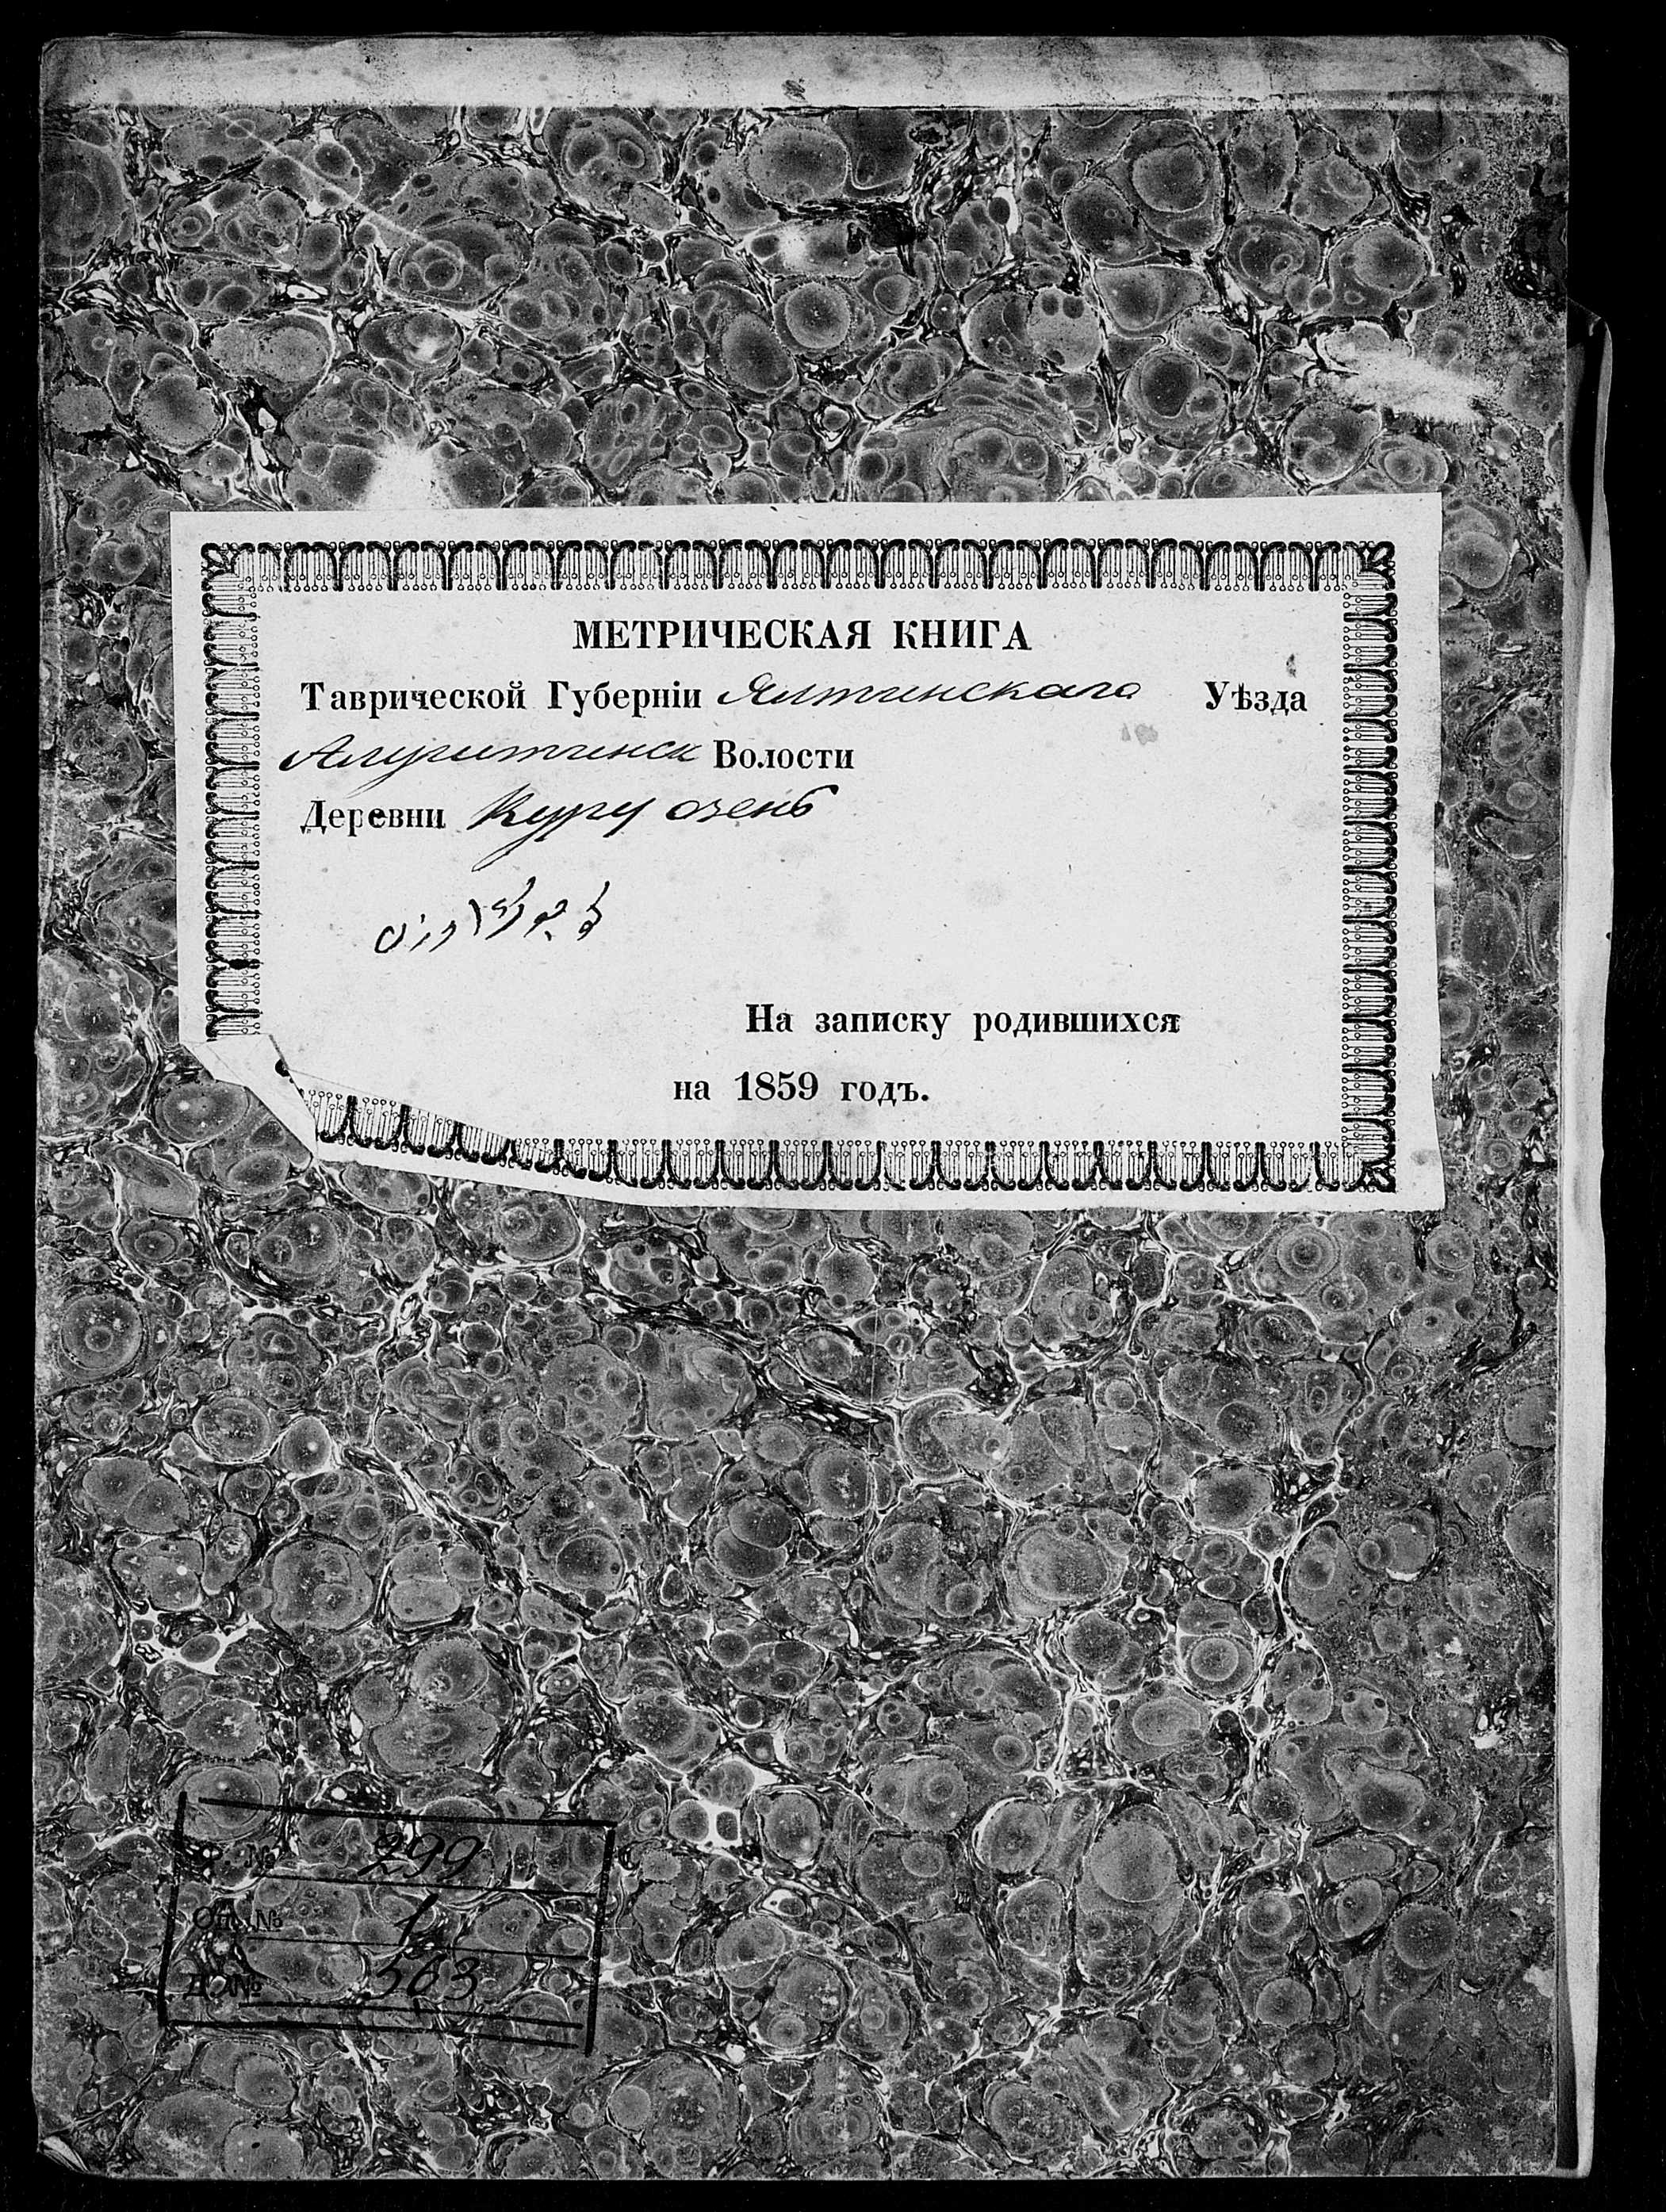 МЕТРИЧЕСКАЯ КНИГА
Таврической Губерніи Ялтинскаго Уѣзда
Алуштинск Волости
Деревни Куру озень
На записку родившихся
на 1859 годъ.
Ф. № 299
Оп. № 1
Д. № 563